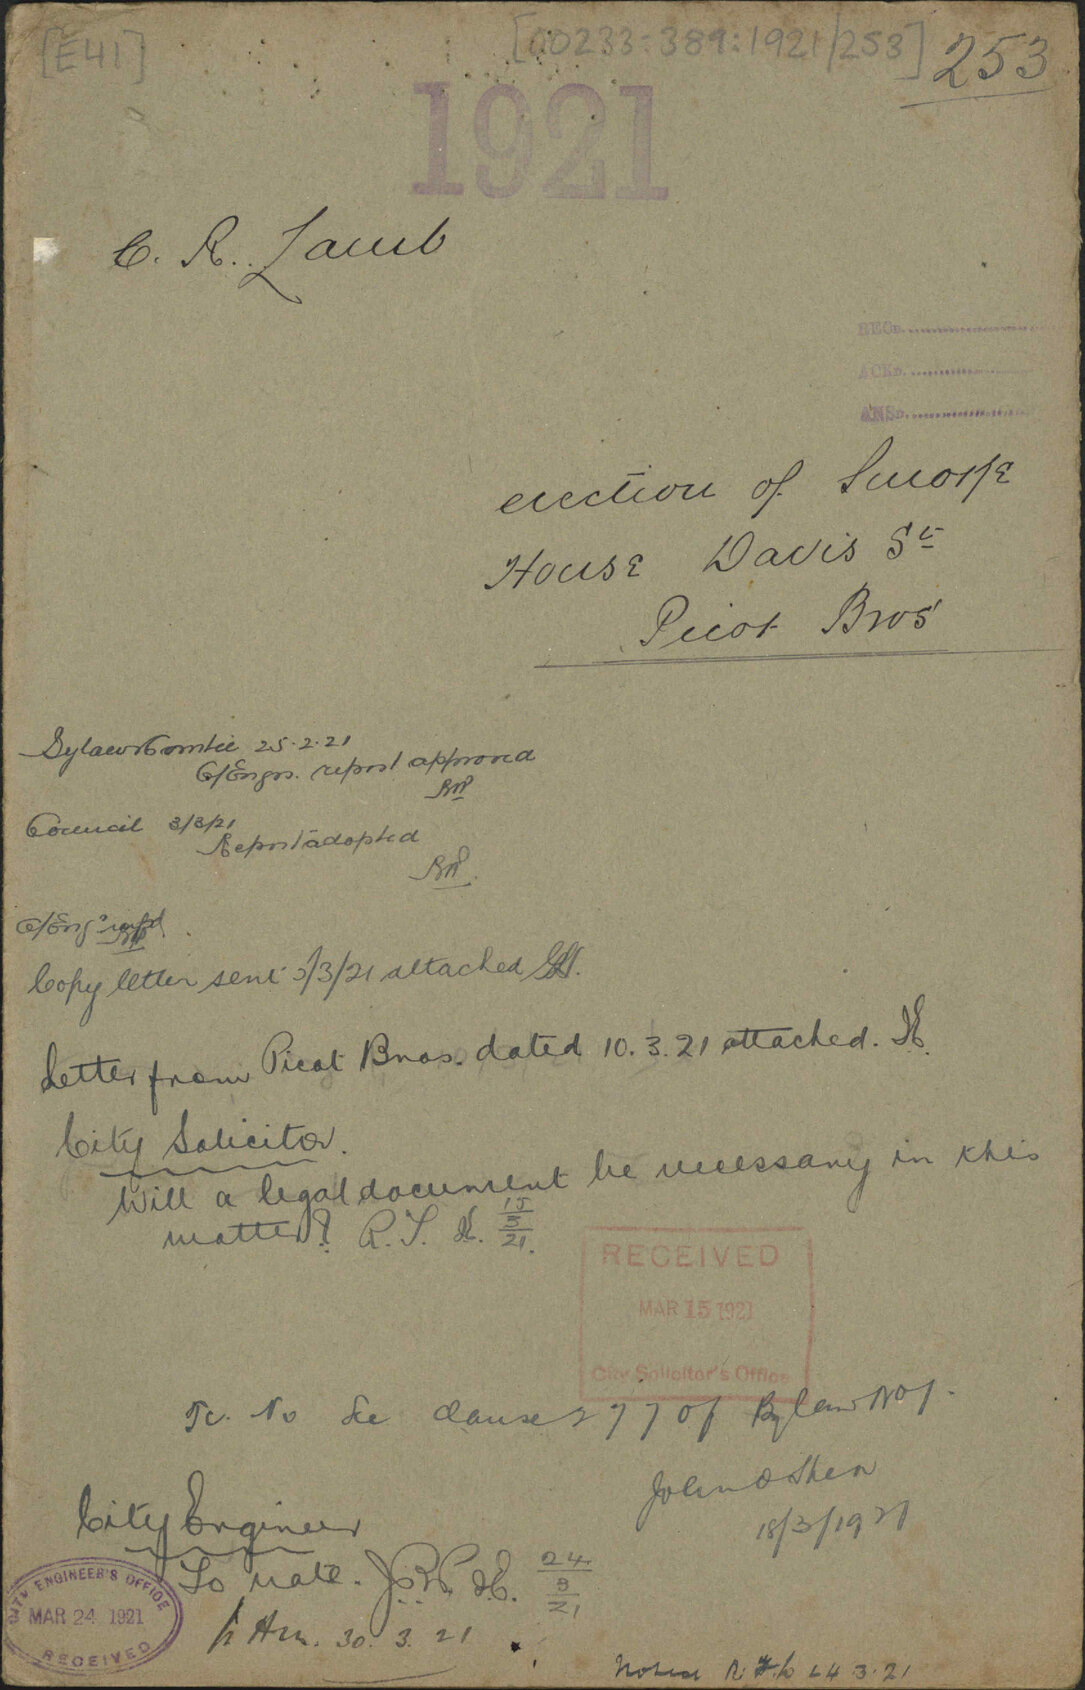 [E41]
[00233:389:1921/253]
253
1921
C. R. Lamb
RECD.
ACKD.
ANSD.
erection of Smoke
House Davis St
Picot Bros
Bylaws Comtee 25.2.21
C/Engrs. report approved
Council 3/3/21
Report adopted
C/Engr
Copy letter sent 5/3/21 attached
Letter from Picot Bros. dated 10.3.21 attached.
City Solicitor.
Will a legal document be necessary in this
matter?
15
3
21.
RECEIVED
MAR 15 1921
City Solicitor's Office
No See clause 277 of Bylaw No 1.
John O'Shea
18/3/1921
City Engineer
To note.
24
3
21
CITY ENGINEER'S OFFICE
MAR 24 1921
RECEIVED
30.3.21
Noted 24 3.21